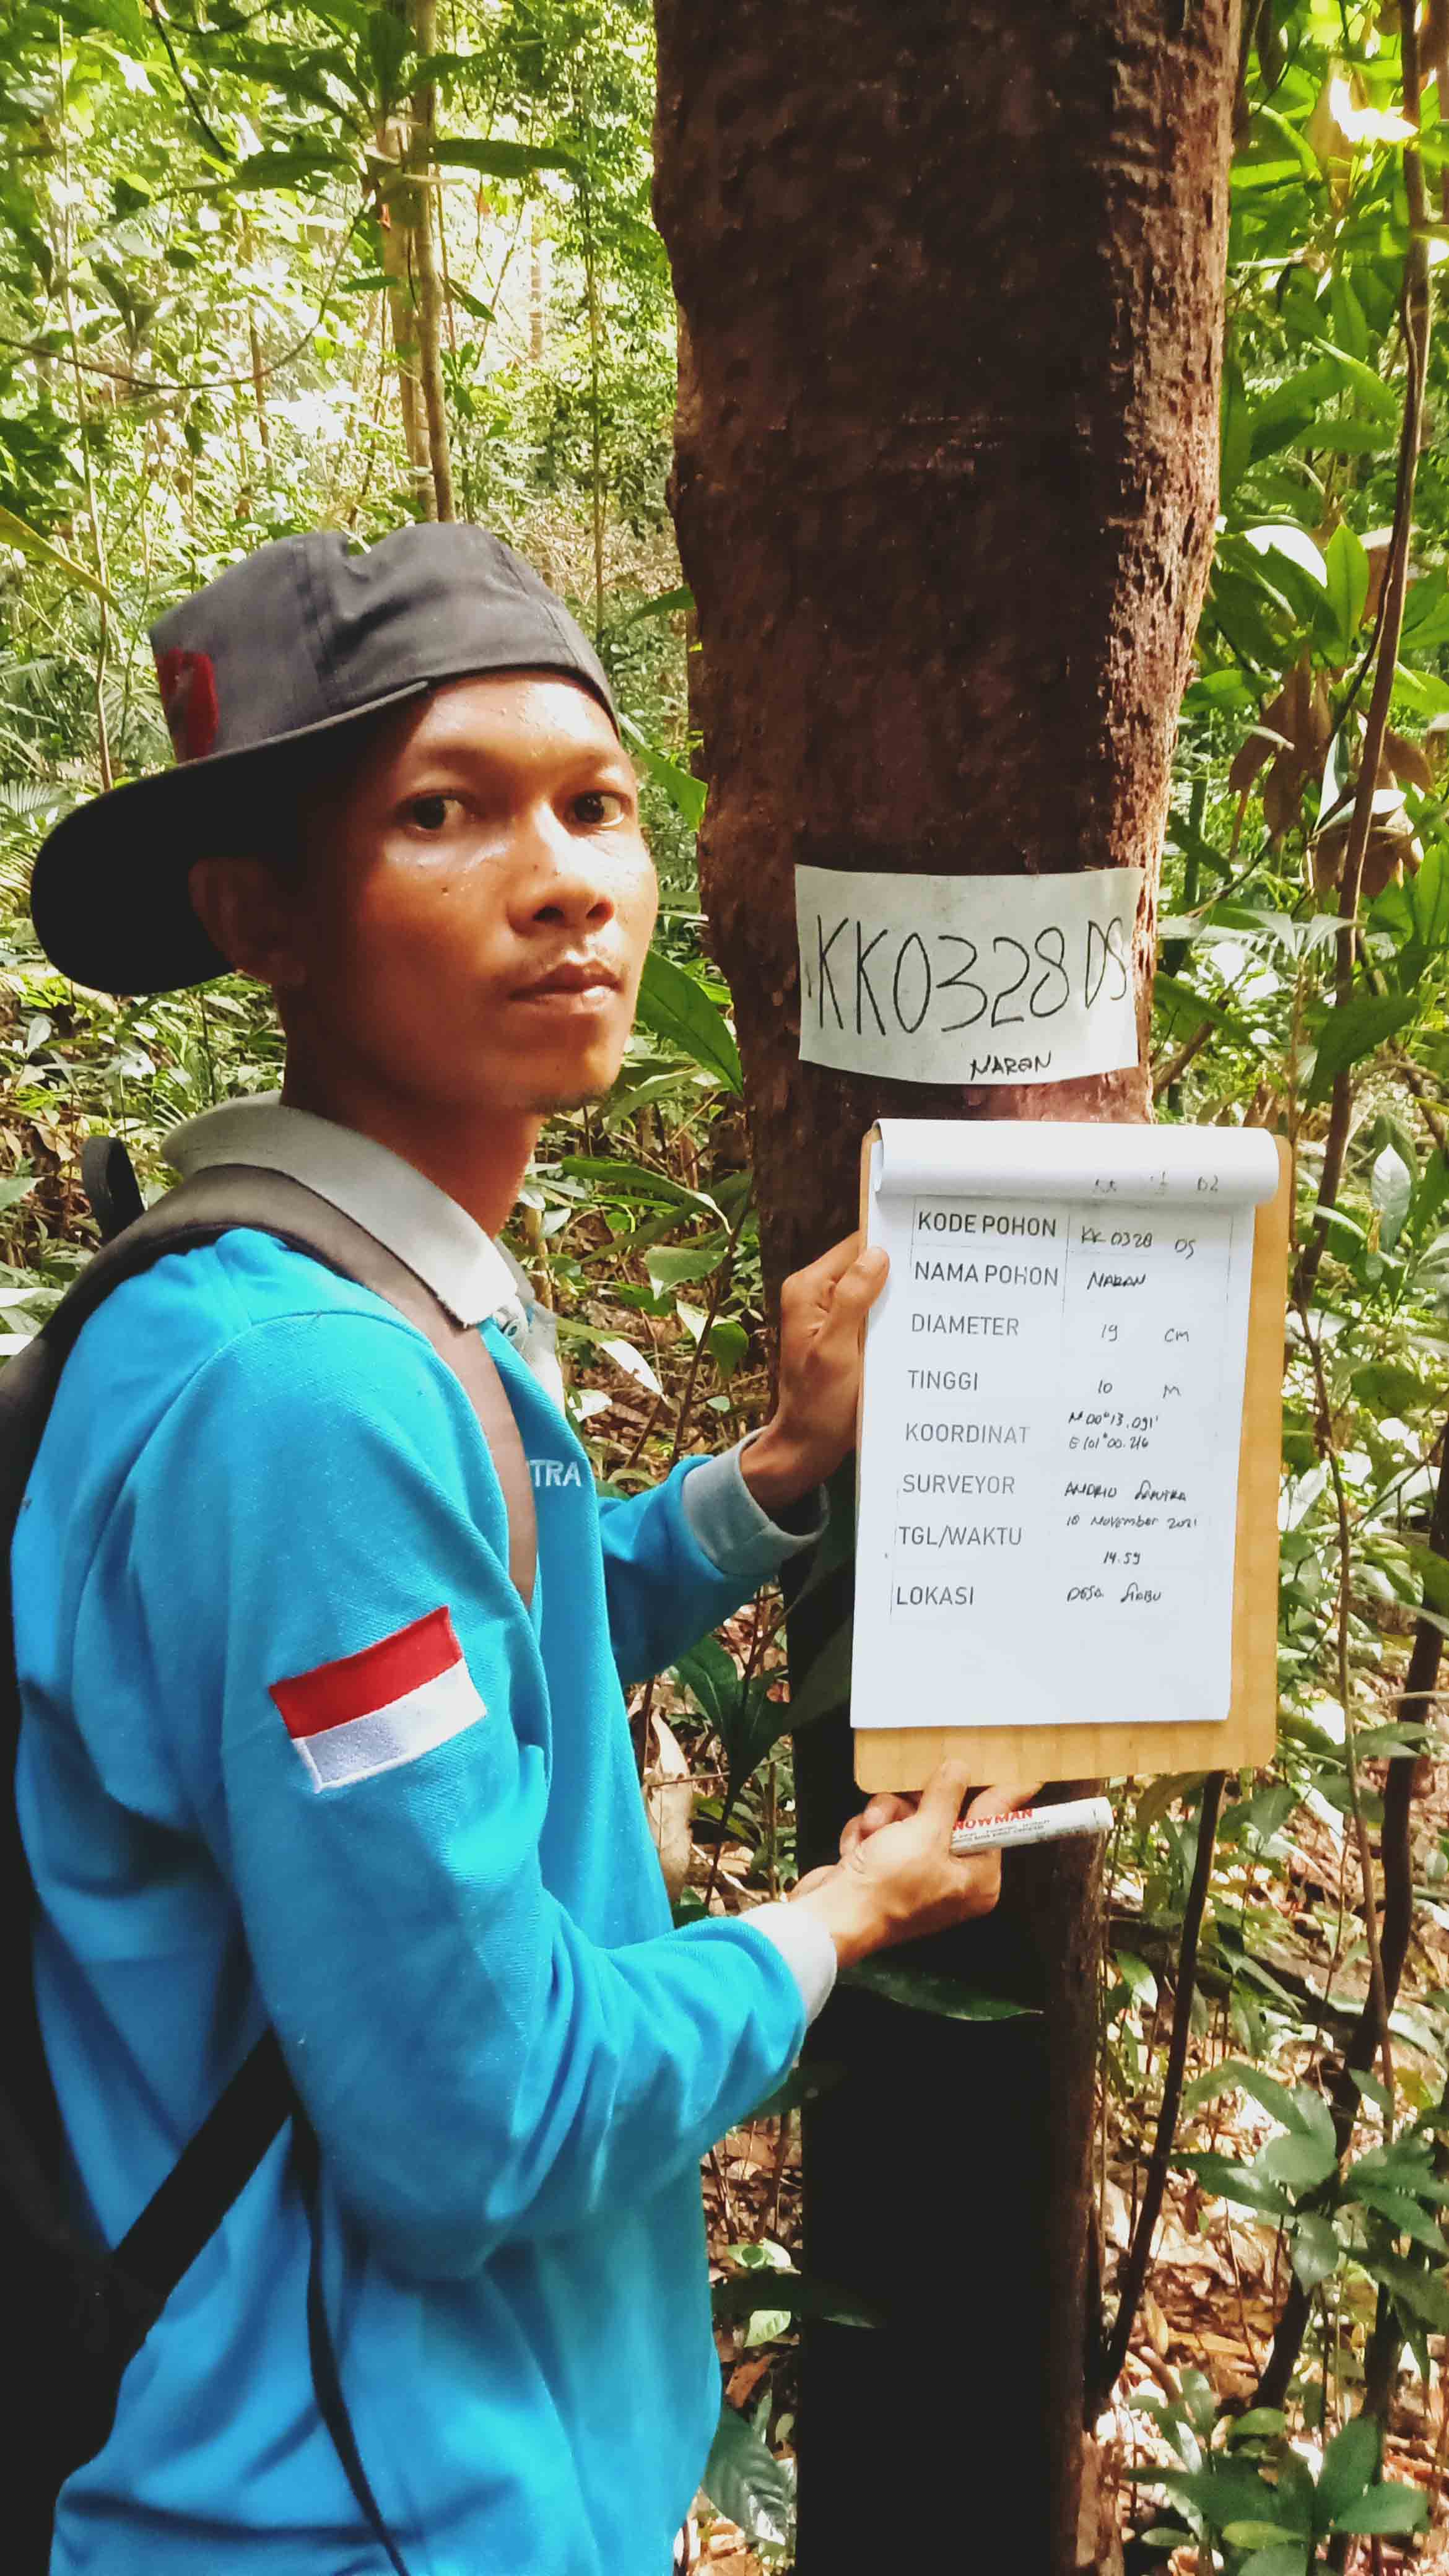 KK0328 DS
NARAN
KODE POHON KK 0328 DS
NAMA POHON NARAN
DIAMETER 19 CM
TINGGI 10 M
KOORDINAT N 00°13.091'
E 101°00.216
SURVEYOR ANDRIO SAPUTRA
TGL/WAKTU 10 November 2021
14.59
LOKASI DESA SIABU
TRA
NOWMAN